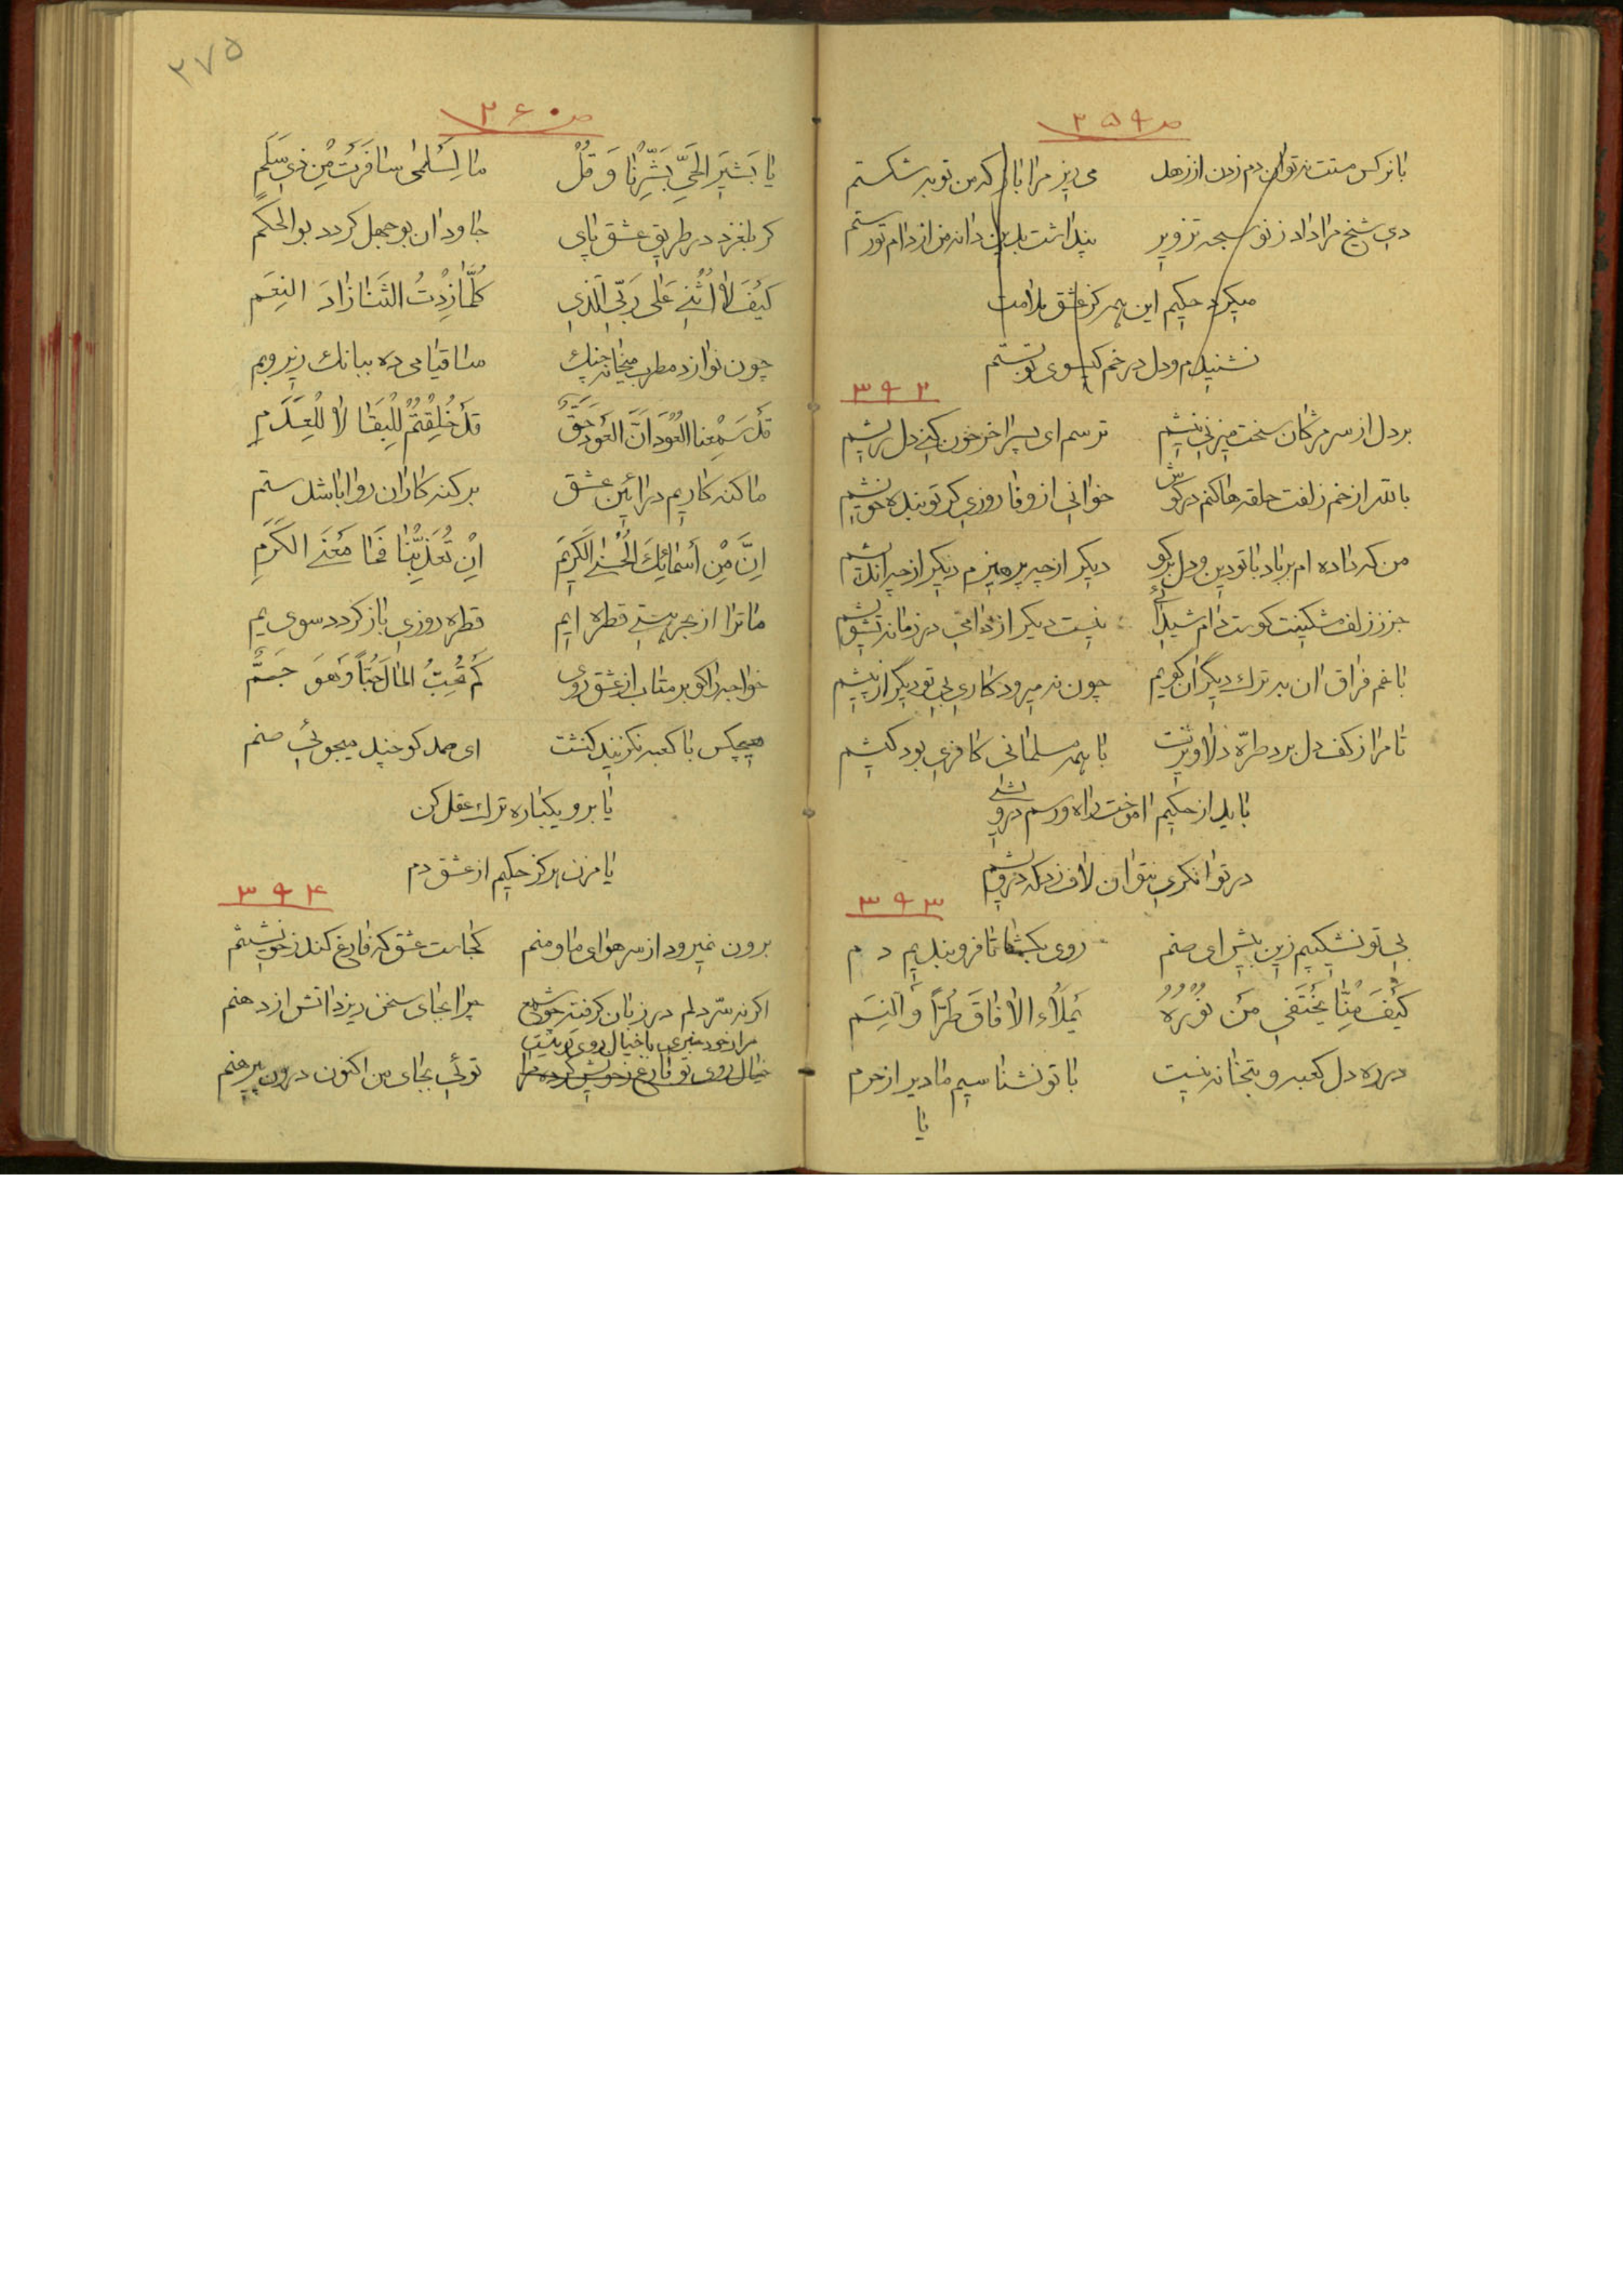 ص ۲۵۹
با نرکس مستت نتوان دم زدن از زهد می ریز مرا باده که من توبه شکستم
دی شیخ مرا داد ز نو سبحه تزویر پنداشت بدین دانه من از دام تو رستم
میکرد حکیم این همه کز عشق ملامت
نشنیدم و دل در خم کیسوی تو بستم
۳۹۲
بر دل از سر مژکان سخت میزنی نیشم ترسم ای پسر اخر خون کنی دل ریشم
بالله از خم زلفت حلقه ها کنم در کوش خوانی از وفا روزی کر تو بنده خویشم
من که داده ام بر باد با تو دین و دل برکو دیکر از چه پرهیزم دیکر از چه اندیشم
جز ز زلف مشکینت کوست دام شیدائی نیست دیکر از دامی در زمانه تشویشم
با غم فراق ان به ترک دیگران کویم چون نه میرود کاری بی تو دیکر از پیشم
تا مرا ز کف دل برد طرّه دلاویزت با همه مسلمانی کافری بود کیشم
باید از حکیم اموخت راه و رسم درویشی
در توانکری نتوان لاف زد که درویشم
۳۹۳
بی تو نشکیبیم زین بیش ای صنم روی بکشا تا فرو بندیم دم
كَيْفَ مِنّا يَختَفي مَنْ نُورُهُ يَملَاءُ الافاقَ طُرّاً وَ النِسَم
در ره دل کعبه و بتخانه نیست با تو نشناسیم ما دیر از حرم
یا
۲۷۵
ص ۲۶۰
يا بَشيَر الحَيِّ بَشِّرنا وَ قُلْ ما لِسَلمی سافَرَتْ مِنْ ذي سَلَمِ
کر بلغزد در طریق عشق پای جاودان بوجهل کردد بوالحکم
كَيْفَ لا اُثْني عَلی رَبّي الَّذي كُلَّما زِدْتُ الثَنا زادَ النِعَم
چون نوازد مطرب میخانه چنک ساقیا می ده ببانک زیر و بم
قَدْ سَمِعْنا العُوَد اَنَّ العَوْدَ حَقٌّ قَدْ خُلِقْتُمْ لِلْبَقا لا لِلْعَدَمِ
ما کنه کاریم در ائین عشق بر کنه کاران روا باشد ستم
اِنَّ مِنْ أسمائِكَ الْحُسْنَی الكَريمَ اِنْ تُعَذِّبْنا فَما مَعْنَی الكَرَمِ
ما ترا از بحر هستی قطره ایم قطره روزی باز کردد سوی یم
خواجه را کو بر متاب از عشق روی كَمْ تُحِبُّ المالَ حُبّاً وَهُوَ جَمّ
هیچکس با کعبه نکزیند کنشت ای صمد کو چند میجوئی صنم
یا برو یکباره ترک عقل کن
یا مزن هرکز حکیم از عشق دم
۳۹۴
برون نمیرود از سر هوای ما و منم کجاست عشق که فارغ کند ز خویشتنم
اکر نه سّر دلم در زبان کرفته چو شمع چرا بجای سخن ریزد اتش از دهنم
مرا ز خود خبری با خیال روی تو نیست
خیال روی تو فارغ ز خویش کرده مرا توئی بجای من اکنون درون پیرهنم